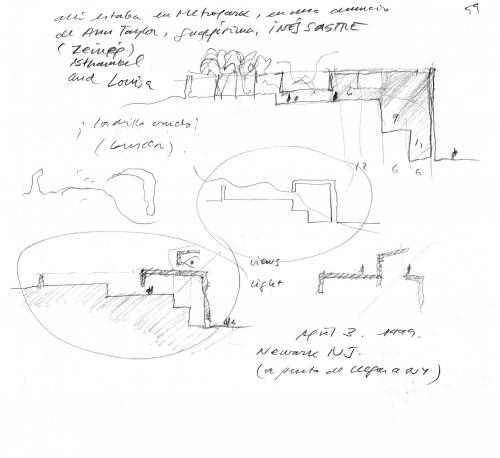 59
allí estaba en Metropark, en un anuncio
de Ann Taylor, guapísima, INÉS SASTRE
(Zeinep)
Isthambul
and Louisa
6
¡ladrillo !
( ).
9
12 6 6
views
light
April 3. 1999.
Newark NJ.
(a punto de llegar a NY)